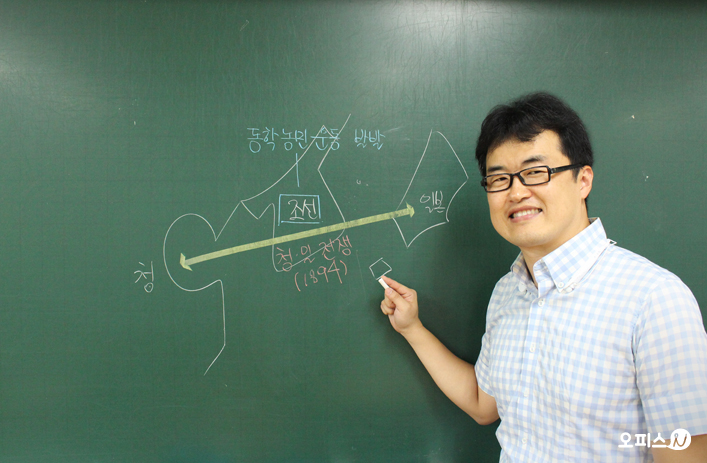 동학 농민 운동 발발
조선
일본
청·일 전쟁
(1894)
청
오피스N